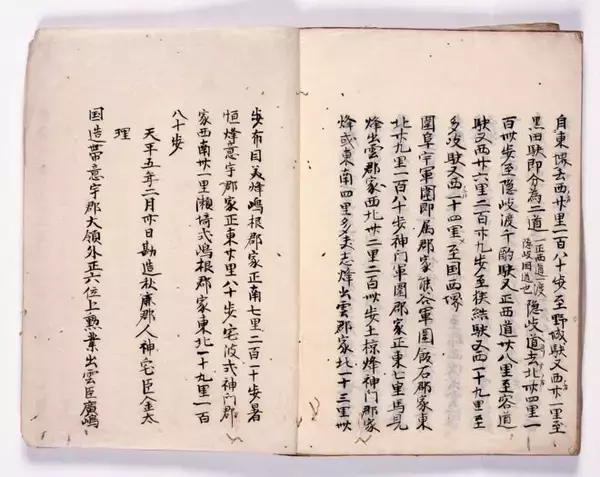 自東堺去西廿里一百八十歩至野城駅又西廿一里至
黒田駅即分為二道 一正西道一渡
隠岐国道也 隠岐道去北卅四里一
百卅歩至隠岐渡千酌駅又正西道卅八里至宍道
駅又西廿六里二百廿九歩至狭結駅又西一十九里至
多岐駅又西一十四里至国西堺
宇軍團即属郡家熊谷軍團飯石郡家東
北廿九里一百八十歩神門軍團郡家正東七里馬見
烽出雲郡家西北卅二里二百卅歩土椋烽神門郡家
烽或東南四里多夫志烽出雲郡家北一十三里卌
歩布自美烽嶋根郡家正南七里二百一十歩暑
恒烽意宇郡家正東廿里八十歩宅波式神門郡
家西南卅一里瀬埼式嶋根郡家東北一十九里一百
八十歩
天平五年二月卅日勘造秋鹿郡人神宅臣金太
理
国造帯意宇郡大領外正六位上勲業出雲臣廣嶋